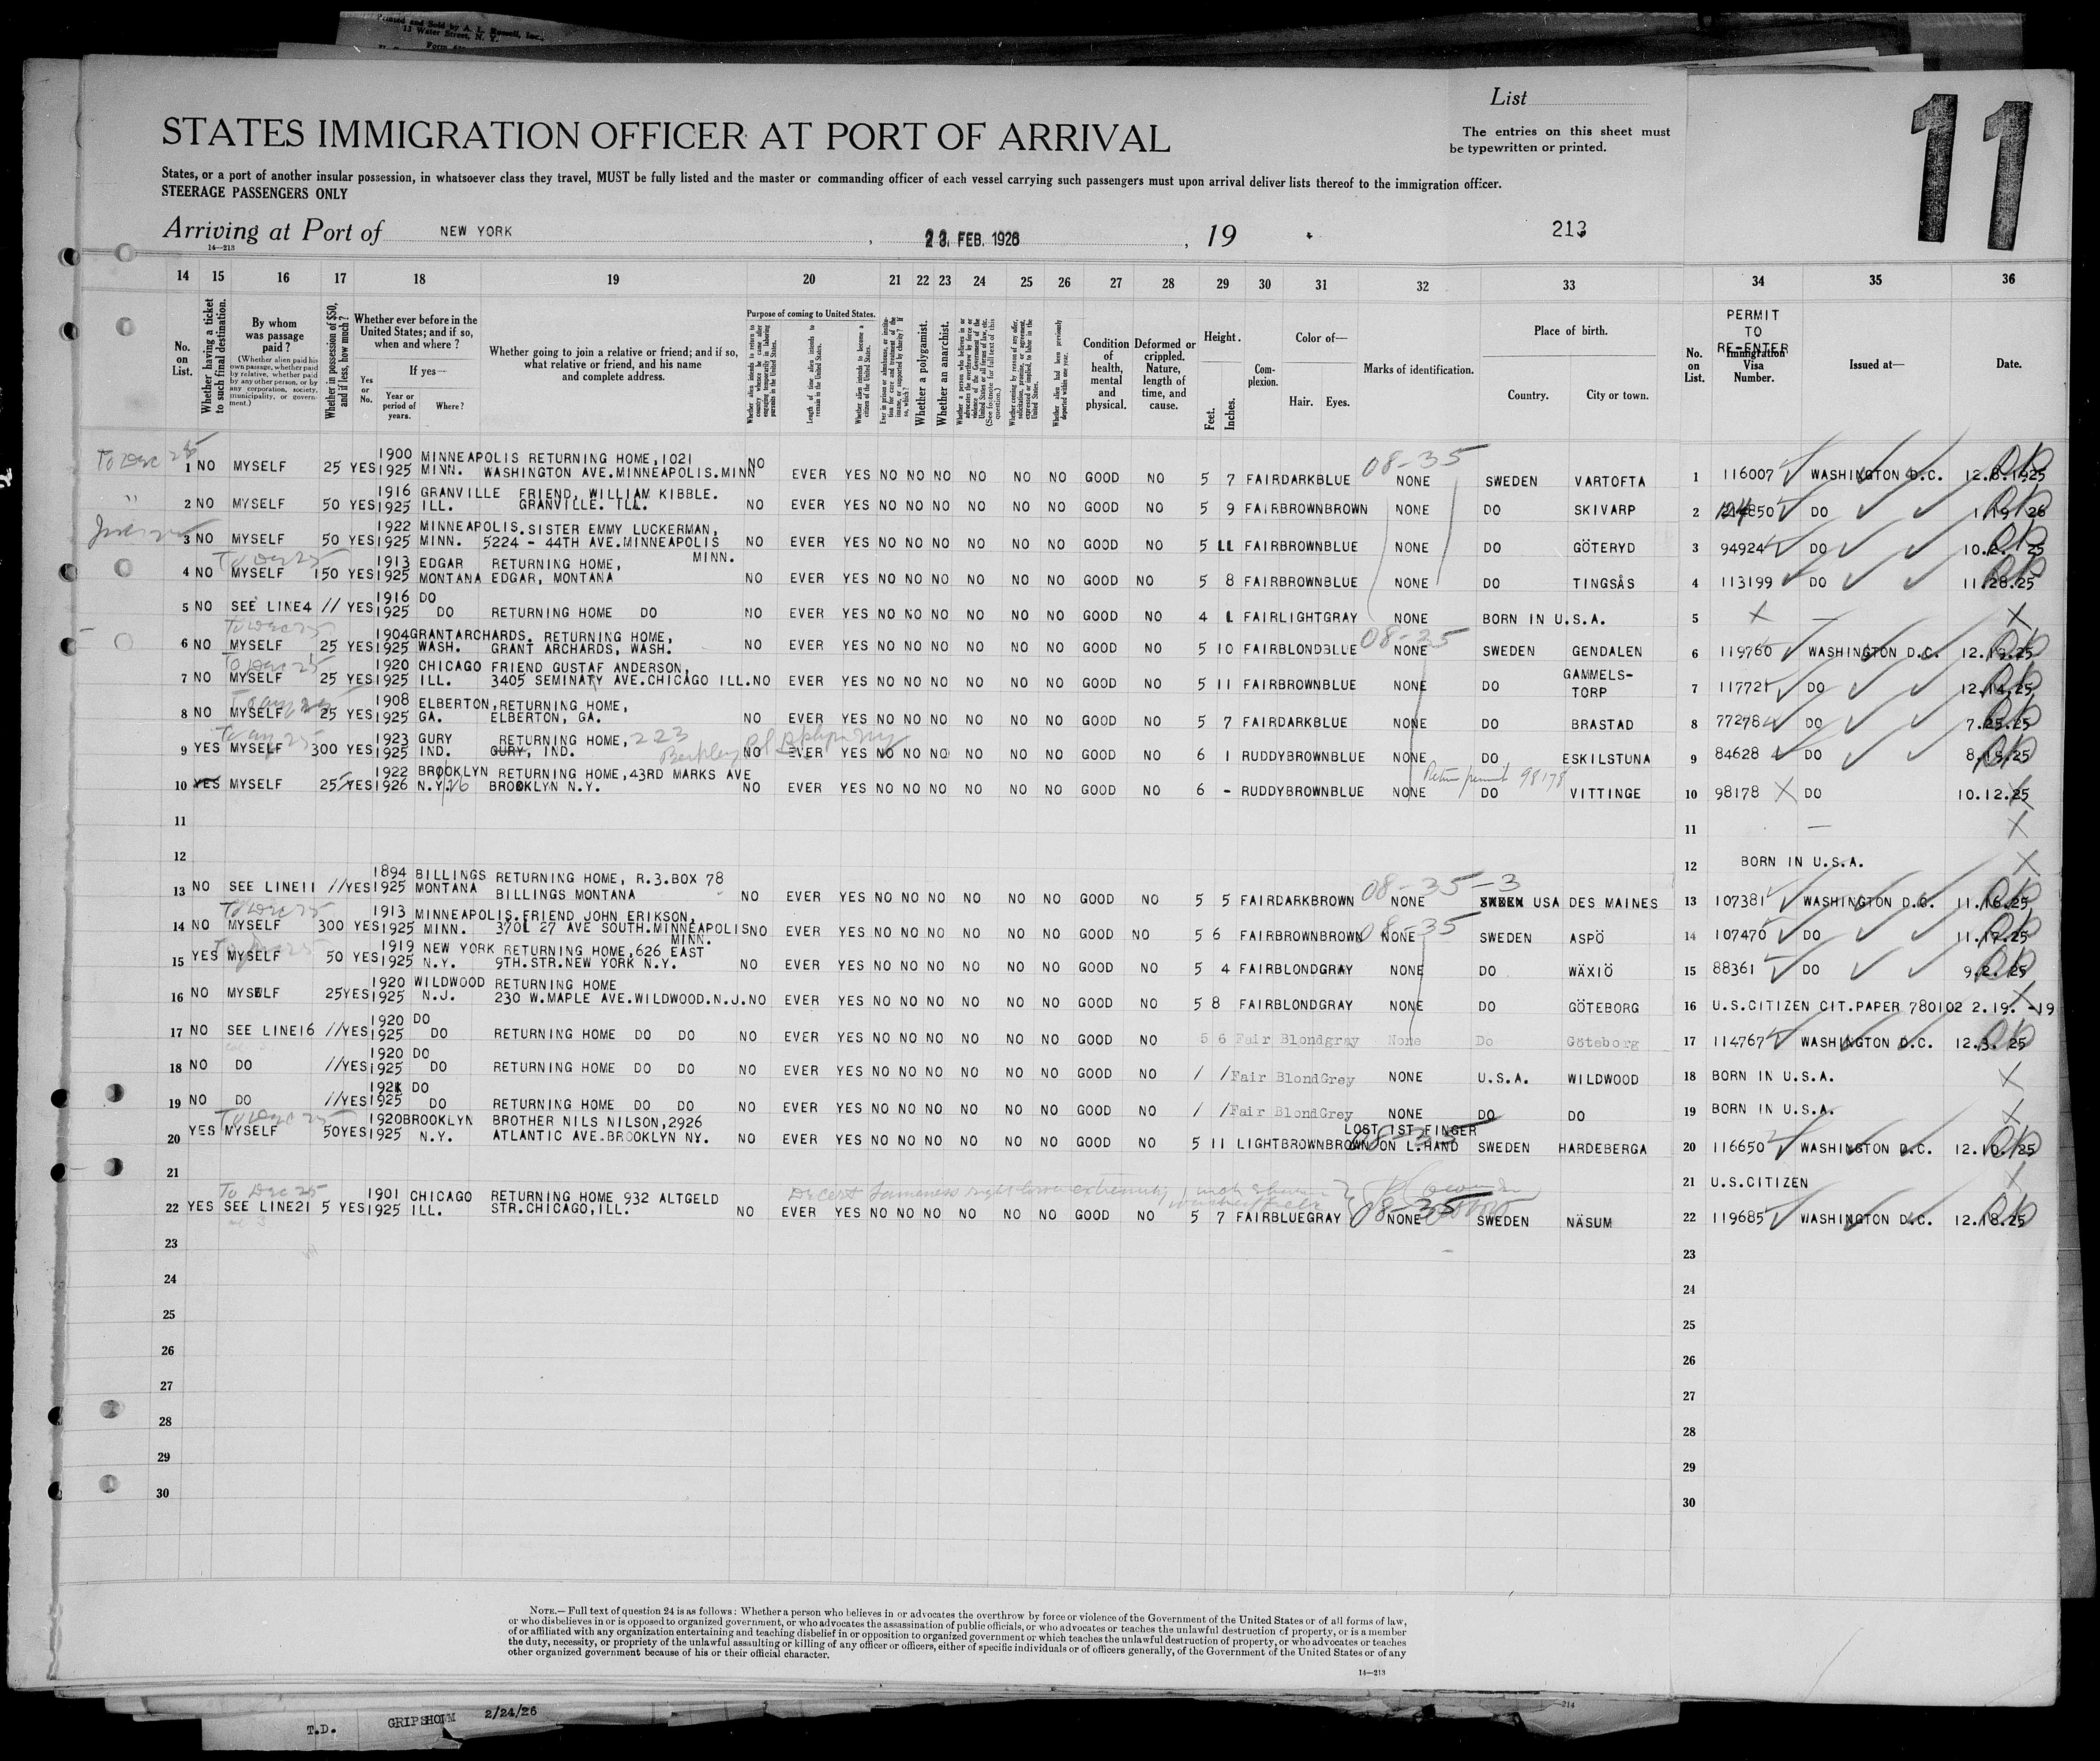 Printed and Sold by A. L. Russell, Inc.,
11 Water Street, N. Y.
List
11
STATES IMMIGRATION OFFICER AT PORT OF ARRIVAL
The entries on this sheet must
be typewritten or printed.
States, or a port of another insular possession, in whatsoever class they travel, MUST be fully listed and the master or commanding officer of each vessel carrying such passengers must upon arrival deliver lists thereof to the immigration officer.
STEERAGE PASSENGERS ONLY
Arriving at Port of NEW YORK, 23. FEB. 1926, 19 213
14—213
14 15 16 17 18 19 20 21 22 23 24 25 26 27 28 29 30 31 32 33 34 35 36
No. on List.
Whether having a ticket to such final destination.
By whom was passage paid?
(Whether alien paid his own passage, whether paid by relative, whether paid by any other person, or by any corporation, society, municipality, or government.)
Whether in possession of $50, and if less, how much?
Whether ever before in the United States; and if so, when and where?
Yes or No.
If yes—
Year or period of years.
Where?
Whether going to join a relative or friend; and if so, what relative or friend, and his name and complete address.
Purpose of coming to United States.
Whether alien intends to return to country whence he came after engaging temporarily in laboring pursuits in the United States.
Length of time alien intends to remain in the United States.
Whether alien intends to become a citizen of the United States.
Ever in prison or almshouse, or institution for care and treatment of the insane, or supported by charity? If so, which?
Whether a polygamist.
Whether an anarchist.
Whether a person who believes in or advocates the overthrow by force or violence of the Government of the United States or all forms of law, etc. (See footnote for full text of this question.)
Whether coming by reason of any offer, solicitation, promise, or agreement, expressed or implied, to labor in the United States.
Whether alien had been previously deported within one year.
Condition of health, mental and physical.
Deformed or crippled. Nature, length of time, and cause.
Height.
Feet. Inches.
Complexion.
Color of—
Hair. Eyes.
Marks of identification.
Place of birth.
Country. City or town.
No. on List.
PERMIT
TO
RE-ENTER
Immigration Visa Number.
Issued at—
Date.
To Dec 25 08-35
1 NO MYSELF 25 YES 1900 1925 MINNEAPOLIS MINN. RETURNING HOME, 1021 WASHINGTON AVE. MINNEAPOLIS. MINN NO EVER YES NO NO NO NO NO NO GOOD NO 5 7 FAIR DARK BLUE NONE SWEDEN VARTOFTA 1 116007 WASHINGTON D.C. 12.8.1925
2 NO MYSELF 50 YES 1916 1925 GRANVILLE ILL. FRIEND, WILLIAM KIBBLE. GRANVILLE. ILL. NO EVER YES NO NO NO NO NO NO GOOD NO 5 9 FAIR BROWN BROWN NONE DO SKIVARP 2 DO
3 NO MYSELF 50 YES 1922 1925 MINNEAPOLIS. MINN. SISTER EMMY LUCKERMAN, 5224 - 44TH AVE. MINNEAPOLIS MINN. NO EVER YES NO NO NO NO NO NO GOOD NO 5 11 FAIR BROWN BLUE NONE DO GÖTERYD 3 94924 DO 10.2. 25
To Dec 25
4 NO MYSELF 150 YES 1913 1925 EDGAR MONTANA RETURNING HOME, EDGAR, MONTANA NO EVER YES NO NO NO NO NO NO GOOD NO 5 8 FAIR BROWN BLUE NONE DO TINGSÅS 4 113199 DO 11.28.25
5 NO SEE LINE4 // YES 1916 1925 DO DO RETURNING HOME DO NO EVER YES NO NO NO NO NO NO GOOD NO 4 1 FAIR LIGHT GRAY NONE BORN IN U.S.A. 5 X — X
To Dec 25 08-35
6 NO MYSELF 25 YES 1904 1925 GRANTARCHARDS. WASH. RETURNING HOME, GRANT ARCHARDS, WASH. NO EVER YES NO NO NO NO NO NO GOOD NO 5 10 FAIR BLOND BLUE NONE SWEDEN GENDALEN 6 119760 WASHINGTON D.C. 12.19.25
To Dec 25
7 NO MYSELF 25 YES 1920 1925 CHICAGO ILL. FRIEND GUSTAF ANDERSON, 3405 SEMINATY AVE. CHICAGO ILL. NO EVER YES NO NO NO NO NO NO GOOD NO 5 11 FAIR BROWN BLUE NONE DO GAMMELS-TORP 7 117721 DO 12.14.25
8 NO MYSELF 25 YES 1908 1925 ELBERTON, GA. RETURNING HOME, ELBERTON, GA. NO EVER YES NO NO NO NO NO NO GOOD NO 5 7 FAIR DARK BLUE NONE DO BRASTAD 8 77278 DO 7.25.25
9 YES MYSELF 300 YES 1923 1925 GURY IND. RETURNING HOME, 223 GURY, IND. NO EVER YES NO NO NO NO NO NO GOOD NO 6 1 RUDDY BROWN BLUE NONE DO ESKILSTUNA 9 84628 DO 8.19.25
Return permit 98178
10 YES MYSELF 25 YES 1922 1926 BROOKLYN N.Y. RETURNING HOME, 43RD MARKS AVE BROOKLYN N.Y. NO EVER YES NO NO NO NO NO NO GOOD NO 6 - RUDDY BROWN BLUE NONE DO VITTINGE 10 98178 X DO 10.12.25
11 11 — X
12 12 BORN IN U.S.A. X
08-35-3
13 NO SEE LINE11 // YES 1894 1925 BILLINGS MONTANA RETURNING HOME, R.3.BOX 78 BILLINGS MONTANA NO EVER YES NO NO NO NO NO NO GOOD NO 5 5 FAIR DARK BROWN NONE USA DES MAINES 13 107381 WASHINGTON D.C. 11.16.25
To Dec 25 08-35
14 NO MYSELF 300 YES 1913 1925 MINNEAPOLIS. MINN. FRIEND JOHN ERIKSON, 3701 27 AVE SOUTH. MINNEAPOLIS MINN. NO EVER YES NO NO NO NO NO NO GOOD NO 5 6 FAIR BROWN BROWN NONE SWEDEN ASPÖ 14 107470 DO 11.17.25
15 YES MYSELF 50 YES 1919 1925 NEW YORK N.Y. RETURNING HOME, 626 EAST 9TH.STR. NEW YORK N.Y. NO EVER YES NO NO NO NO NO NO GOOD NO 5 4 FAIR BLOND GRAY NONE DO WÄXIÖ 15 88361 DO 9.2. 25
16 NO MYSELF 25 YES 1920 1925 WILDWOOD N.J. RETURNING HOME 230 W.MAPLE AVE. WILDWOOD.N.J. NO EVER YES NO NO NO NO NO NO GOOD NO 5 8 FAIR BLOND GRAY NONE DO GÖTEBORG 16 U.S.CITIZEN CIT.PAPER 780102 2.19. -19
17 NO SEE LINE16 // YES 1920 1925 DO DO RETURNING HOME DO DO NO EVER YES NO NO NO NO NO NO GOOD NO 5 6 Fair Blond gray None Do Göteborg 17 114767 WASHINGTON D.C. 12.3. 25
18 NO DO // YES 1920 1925 DO DO RETURNING HOME DO DO NO EVER YES NO NO NO NO NO NO GOOD NO / / Fair Blond Grey NONE U.S.A. WILDWOOD 18 BORN IN U.S.A. X
19 NO DO // YES 1921 1925 DO DO RETURNING HOME DO DO NO EVER YES NO NO NO NO NO NO GOOD NO / / Fair Blond Grey NONE DO DO 19 BORN IN U.S.A. X
To Dec 25
20 YES MYSELF 50 YES 1920 1925 BROOKLYN N.Y. BROTHER NILS NILSON, 2926 ATLANTIC AVE. BROOKLYN NY. NO EVER YES NO NO NO NO NO NO GOOD NO 5 11 LIGHT BROWN BROWN LOST 1ST FINGER ON L.HAND 08-35 SWEDEN HARDEBERGA 20 116650 WASHINGTON D.C. 12.10.25
21 21 U.S.CITIZEN X
To Dec 25 08-35
22 YES SEE LINE21 5 YES 1901 1925 CHICAGO ILL. RETURNING HOME 932 ALTGELD STR. CHICAGO, ILL. NO EVER YES NO NO NO NO NO NO GOOD NO 5 7 FAIR BLUE GRAY NONE SWEDEN NÄSUM 22 119685 WASHINGTON D.C. 12.18.25
23 23
24 24
25 25
26 26
27 27
28 28
29 29
30 30
NOTE.—Full text of question 24 is as follows: Whether a person who believes in or advocates the overthrow by force or violence of the Government of the United States or of all forms of law,
or who disbelieves in or is opposed to organized government, or who advocates the assassination of public officials, or who advocates or teaches the unlawful destruction of property, or is a member
of or affiliated with any organization entertaining and teaching disbelief in or opposition to organized government or which teaches the unlawful destruction of property, or who advocates or teaches
the duty, necessity, or propriety of the unlawful assaulting or killing of any officer or officers, either of specific individuals or of officers generally, of the Government of the United States or of any
other organized government because of his or their official character.
14—213
214
T.D. GRIPSHOLM 2/24/26